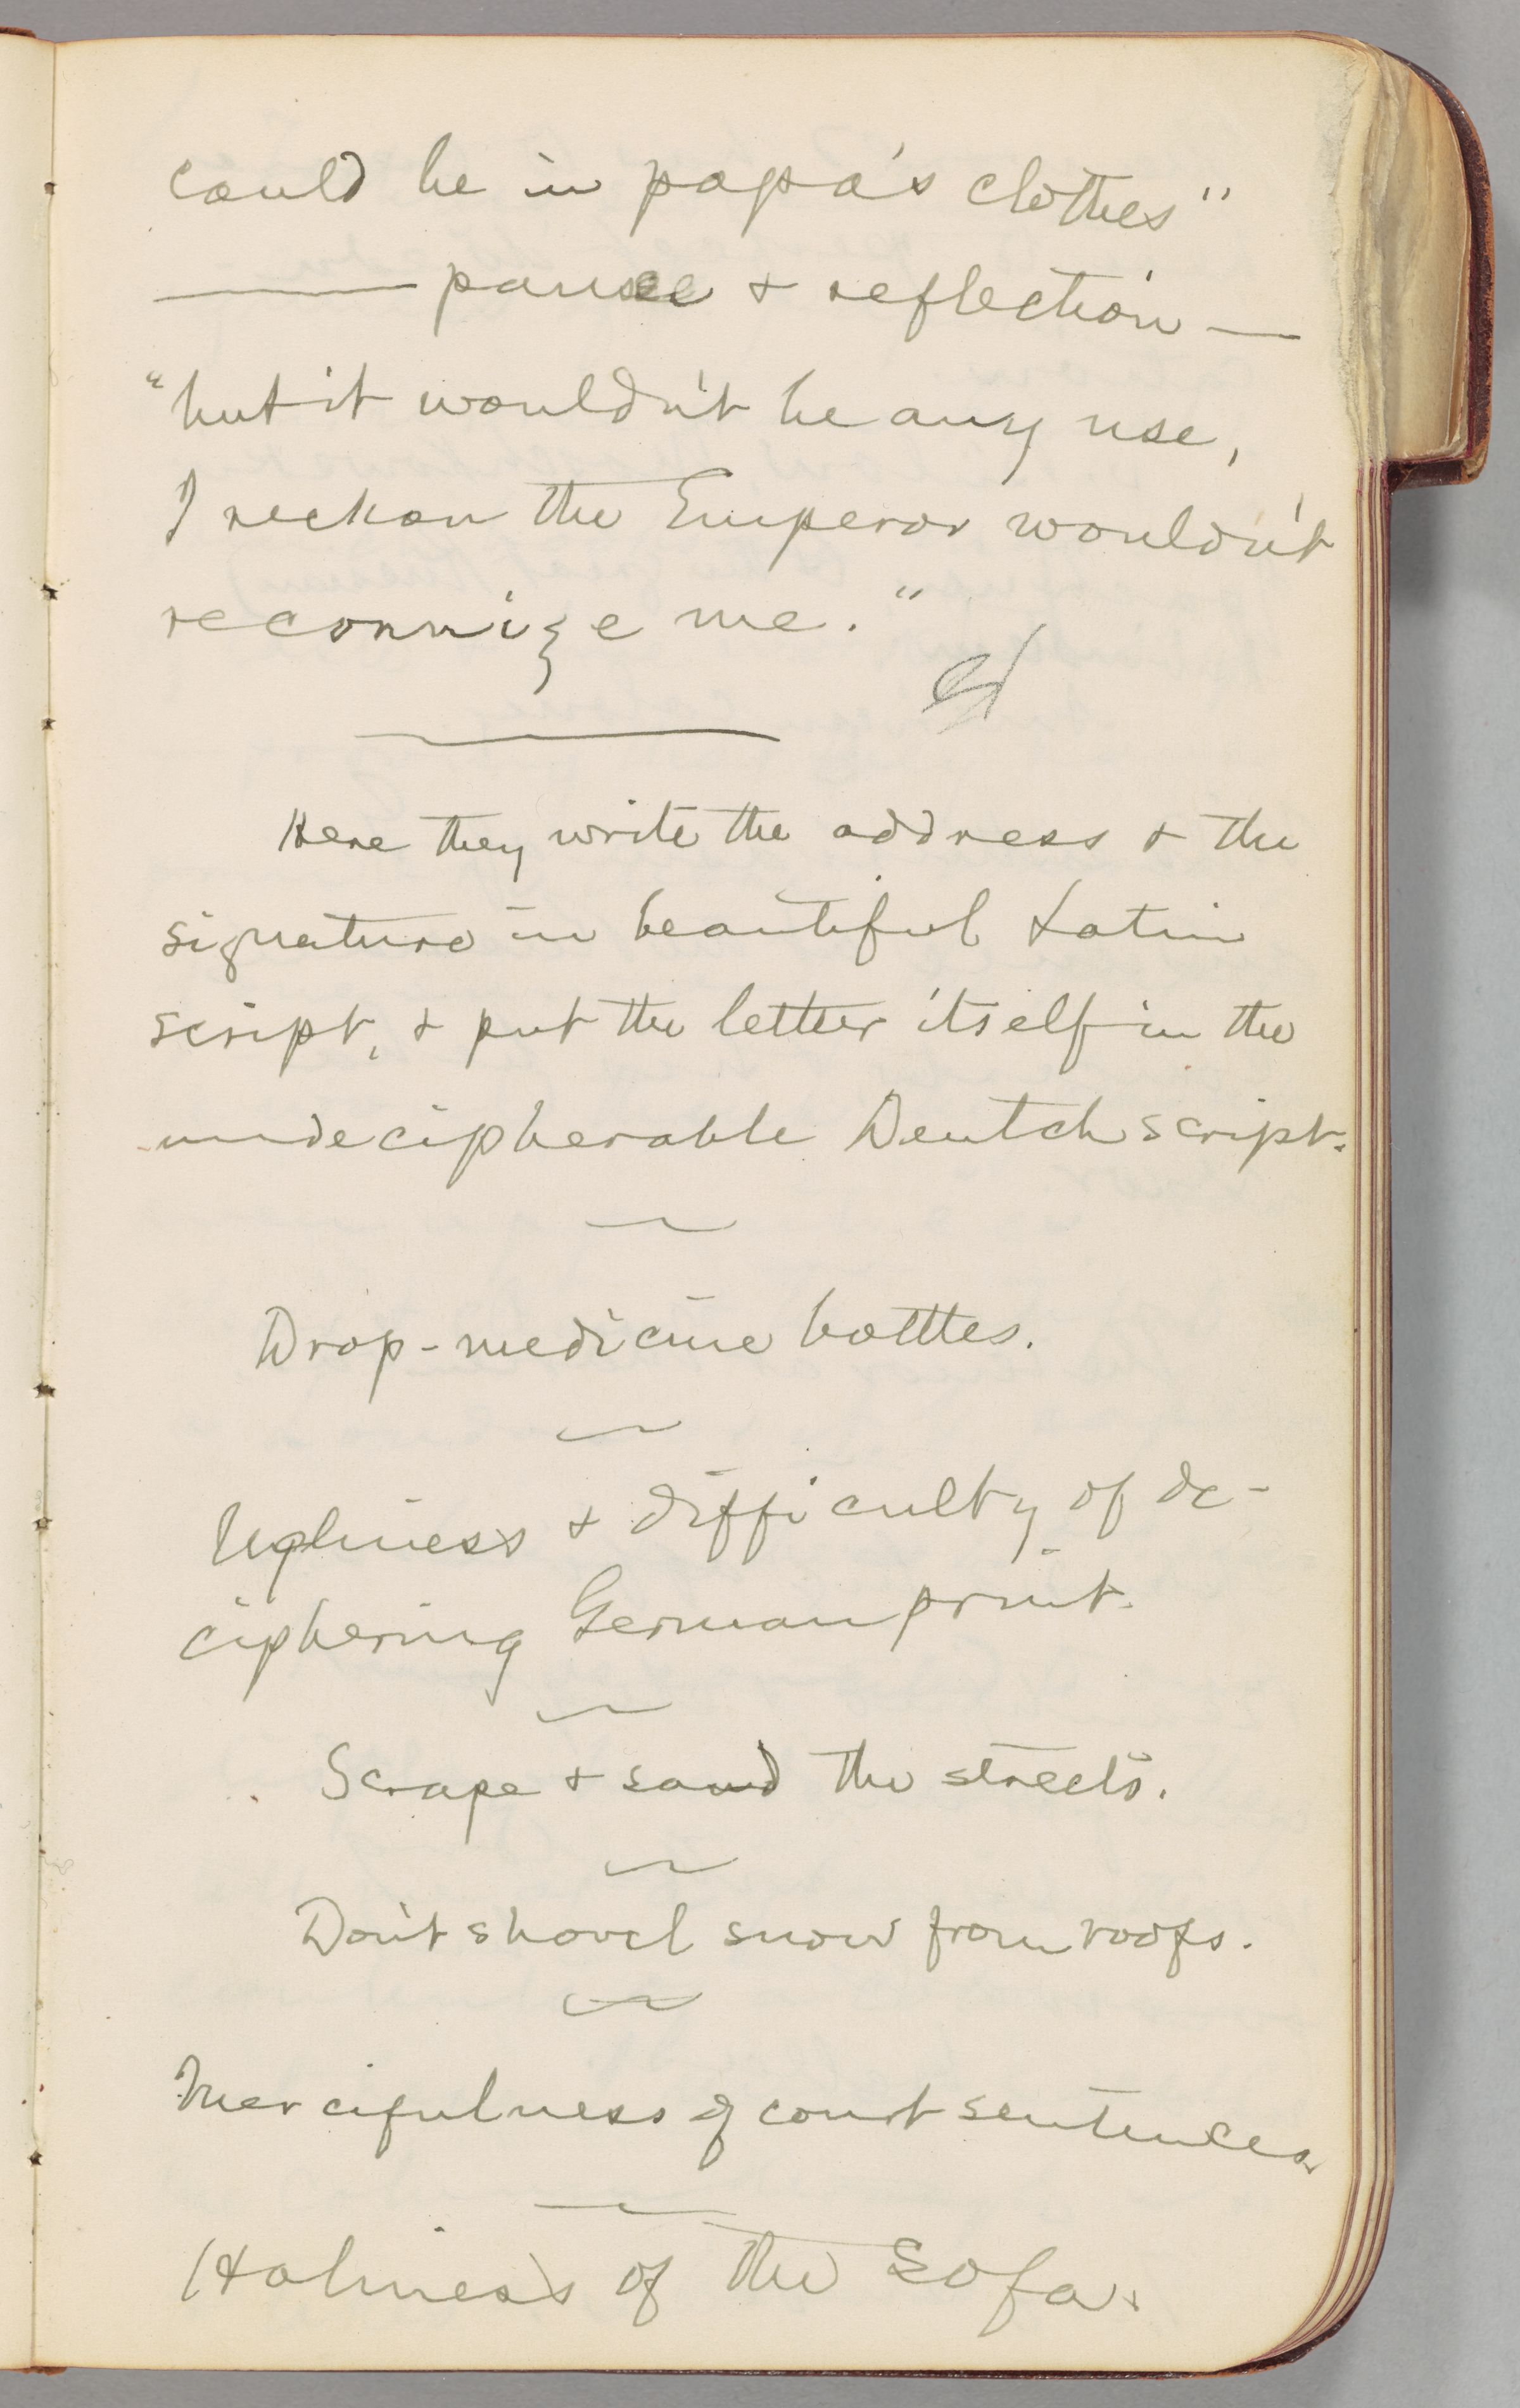 could be in papa's clothes"
—— pause & reflection —
"but it wouldn't be any use,
I reckon the Emperor wouldn't
reconnize me."
Here they write the address & the
signature in beautiful Latin
script, & put the letter itself in the
undecipherable Deutch script.
Drop-medicine botttes.
Ugliness & difficulty of de-
ciphering German print.
Scrape & sand the streets.
Don't shovel snow from roofs.
Mercifulness of court sentences.
Holiness of the Sofa.